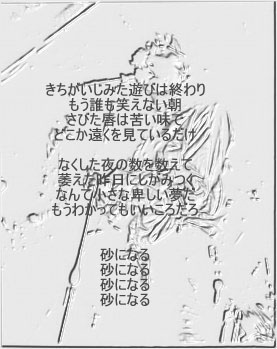 きちがいじみた遊びは終わり
もう誰も笑えない朝
さびた唇は苦い味で
どこか遠くを見ているだけ
なくした夜の数を数えて
萎えた昨日にしがみつく
なんて小さな卑しい夢だ
もうわかってもいいころだろ
砂になる
砂になる
砂になる
砂になる